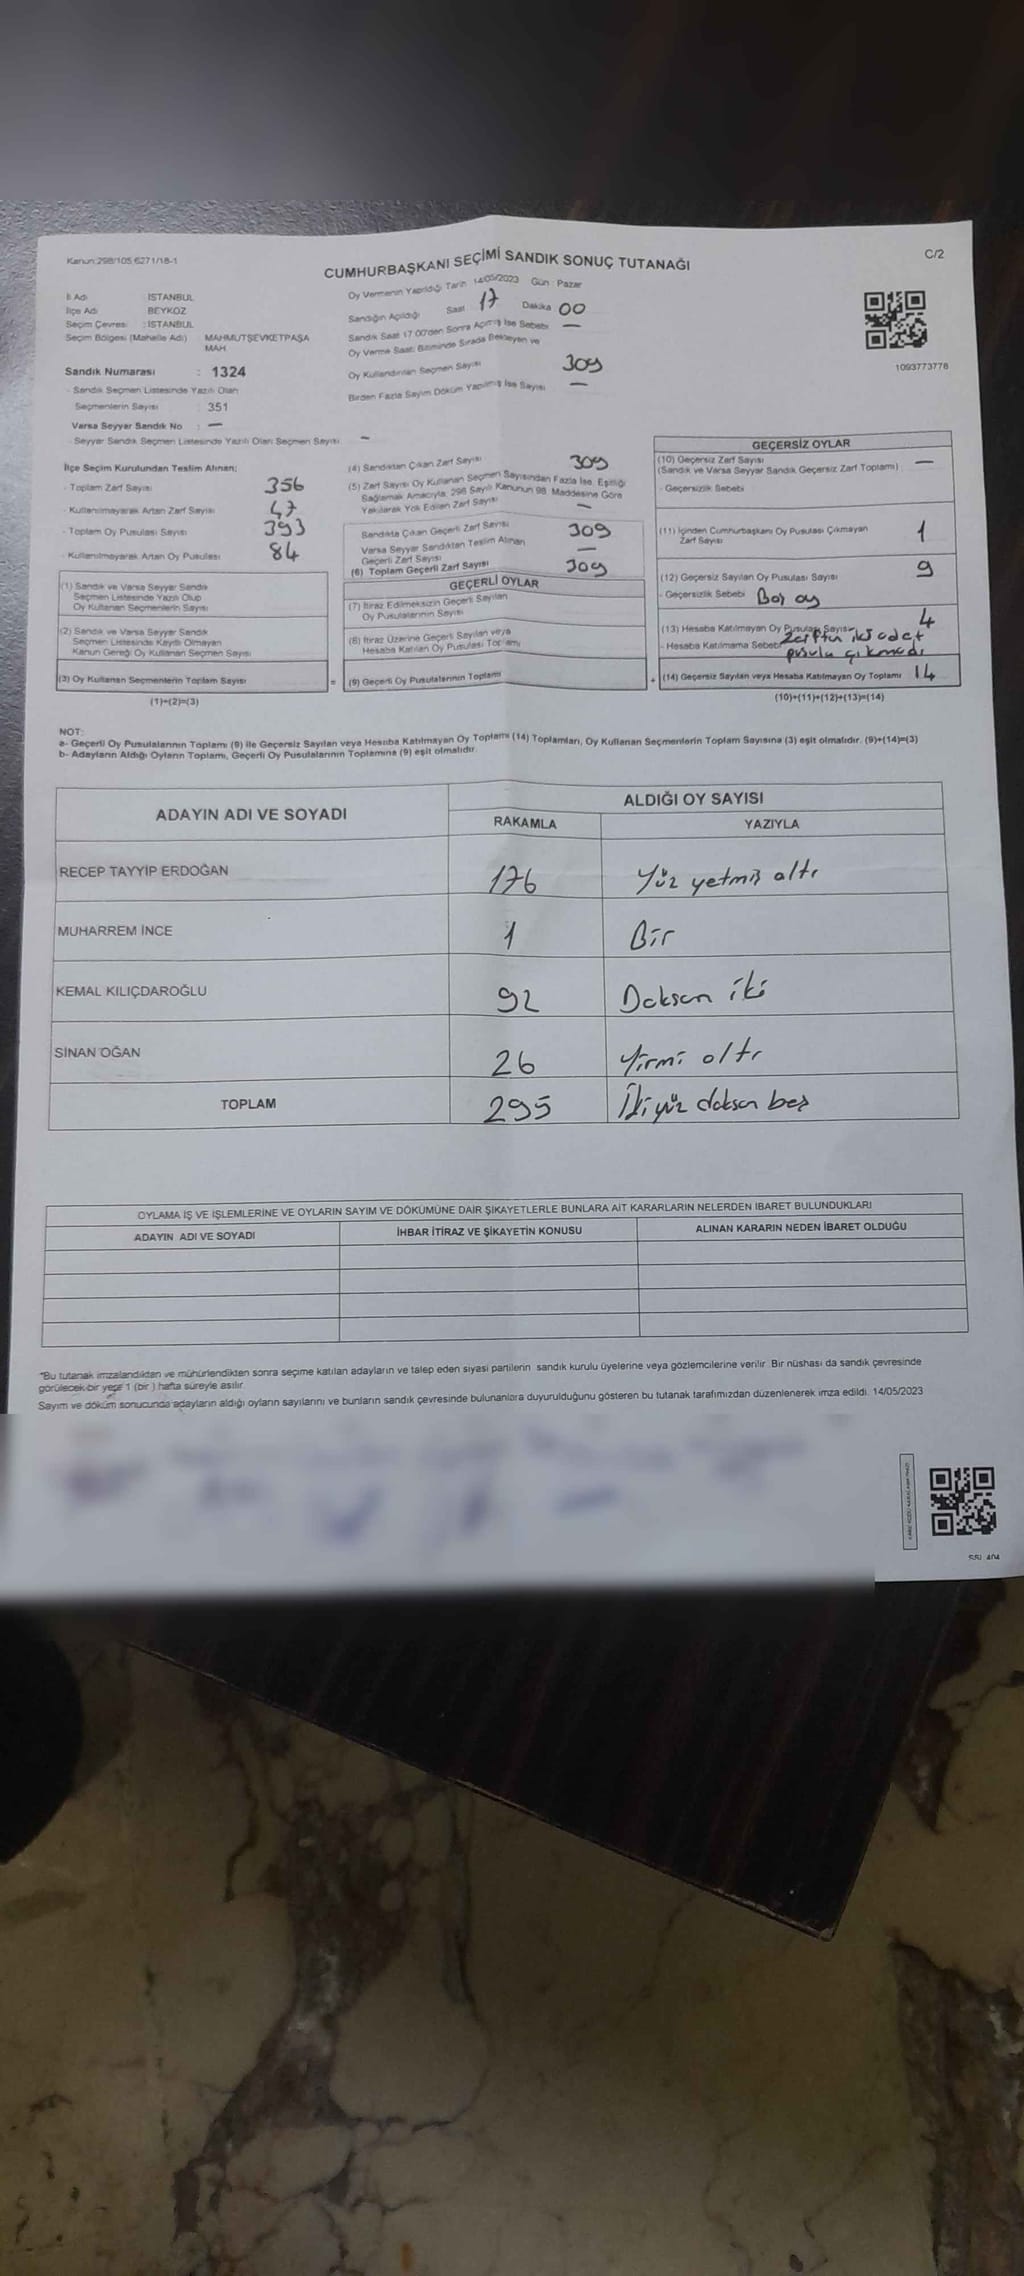 Kanun:298/105,6271/18-1
C/2
CUMHURBAŞKANI SEÇİMİ SANDIK SONUÇ TUTANAĞI
İl Adı : İSTANBUL
İlçe Adı : BEYKOZ
Seçim Çevresi : İSTANBUL
Seçim Bölgesi (Mahalle Adı) : MAHMUTŞEVKETPAŞA MAH.
Sandık Numarası : 1324
- Sandık Seçmen Listesinde Yazılı Olan
Seçmenlerin Sayısı : 351
Varsa Seyyar Sandık No : —
- Seyyar Sandık Seçmen Listesinde Yazılı Olan Seçmen Sayısı —
Oy Vermenin Yapıldığı Tarih 14/05/2023 Gün : Pazar
Sandığın Açıldığı Saat 17 Dakika 00
Sandık Saat 17.00'den Sonra Açılmış İse Sebebi —
Oy Verme Saati Bitiminde Sırada Bekleyen ve
Oy Kullandırılan Seçmen Sayısı 309
Birden Fazla Sayım Döküm Yapılmış İse Sayısı —
1093773778
İlçe Seçim Kurulundan Teslim Alınan;
- Toplam Zarf Sayısı 356
- Kullanılmayarak Artan Zarf Sayısı 47
- Toplam Oy Pusulası Sayısı 393
- Kullanılmayarak Artan Oy Pusulası 84
(1) Sandık ve Varsa Seyyar Sandık
Seçmen Listesinde Yazılı Olup
Oy Kullanan Seçmenlerin Sayısı
(2) Sandık ve Varsa Seyyar Sandık
Seçmen Listesinde Kayıtlı Olmayan
Kanun Gereği Oy Kullanan Seçmen Sayısı
(3) Oy Kullanan Seçmenlerin Toplam Sayısı
=
(1)+(2)=(3)
(4) Sandıktan Çıkan Zarf Sayısı 309
(5) Zarf Sayısı Oy Kullanan Seçmen Sayısından Fazla İse, Eşitliği
Sağlamak Amacıyla, 298 Sayılı Kanunun 98. Maddesine Göre
Yakılarak Yok Edilen Zarf Sayısı —
Sandıkta Çıkan Geçerli Zarf Sayısı 309
Varsa Seyyar Sandıktan Teslim Alınan
Geçerli Zarf Sayısı —
(6) Toplam Geçerli Zarf Sayısı 309
GEÇERLİ OYLAR
(7) İtiraz Edilmeksizin Geçerli Sayılan
Oy Pusulalarının Sayısı
(8) İtiraz Üzerine Geçerli Sayılan veya
Hesaba Katılan Oy Pusulası Toplamı
(9) Geçerli Oy Pusulalarının Toplamı
+
GEÇERSİZ OYLAR
(10) Geçersiz Zarf Sayısı —
(Sandık ve Varsa Seyyar Sandık Geçersiz Zarf Toplamı)
- Geçersizlik Sebebi
(11) İçinden Cumhurbaşkanı Oy Pusulası Çıkmayan
Zarf Sayısı 1
(12) Geçersiz Sayılan Oy Pusulası Sayısı 9
- Geçersizlik Sebebi Boş oy
(13) Hesaba Katılmayan Oy Pusulası Sayısı 4
- Hesaba Katılmama Sebebi Zarftan iki adet
pusula çıkmadı
(14) Geçersiz Sayılan veya Hesaba Katılmayan Oy Toplamı 14
(10)+(11)+(12)+(13)=(14)
NOT:
a- Geçerli Oy Pusulalarının Toplamı (9) ile Geçersiz Sayılan veya Hesaba Katılmayan Oy Toplamı (14) Toplamları, Oy Kullanan Seçmenlerin Toplam Sayısına (3) eşit olmalıdır. (9)+(14)=(3)
b- Adayların Aldığı Oyların Toplamı, Geçerli Oy Pusulalarının Toplamına (9) eşit olmalıdır.
ADAYIN ADI VE SOYADI
ALDIĞI OY SAYISI
RAKAMLA YAZIYLA
RECEP TAYYİP ERDOĞAN 176 Yüz yetmiş altı
MUHARREM İNCE 1 Bir
KEMAL KILIÇDAROĞLU 92 Doksan iki
SİNAN OĞAN 26 Yirmi altı
TOPLAM 295 İkiyüz doksan beş
OYLAMA İŞ VE İŞLEMLERİNE VE OYLARIN SAYIM VE DÖKÜMÜNE DAİR ŞİKAYETLERLE BUNLARA AİT KARARLARIN NELERDEN İBARET BULUNDUKLARI
ADAYIN ADI VE SOYADI İHBAR İTİRAZ VE ŞİKAYETİN KONUSU ALINAN KARARIN NEDEN İBARET OLDUĞU
*Bu tutanak imzalandıktan ve mühürlendikten sonra seçime katılan adayların ve talep eden siyasi partilerin sandık kurulu üyelerine veya gözlemcilerine verilir. Bir nüshası da sandık çevresinde
görülecek bir yere 1 (bir ) hafta süreyle asılır.
Sayım ve döküm sonucunda adayların aldığı oyların sayılarını ve bunların sandık çevresinde bulunanlara duyurulduğunu gösteren bu tutanak tarafımızdan düzenlenerek imza edildi. 14/05/2023